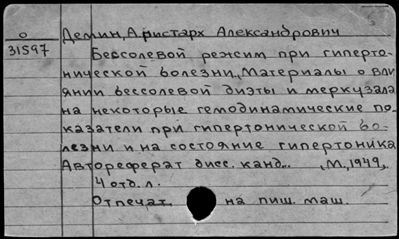 О
31597
Демин, Аристарх Александрович
Бессолевой режим при гиперто-
нической болезни, Материалы о вли
янии бессолевой диэты и меркузала
на некоторые гемодинамические по-
казатели при гипертонической бо-
лезни и на состояние гипертоника
Автореферат дисс. канд... М., 1949,
4 отд. л.
Отпечат. на пиш. маш.